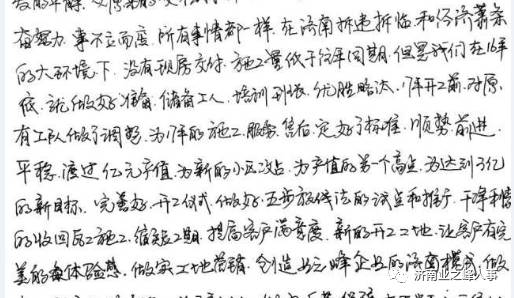 奋努力,事不立而废,所有事情都一样,在济南拆违拆临和经济萧条
的大环境下,没有现房交付,施工量低于往年同期,但是我们在16年
底,就做好准备,储备工人,培训班长,优胜略汰,17年开工前,对原
有工队做了调整,为17年的施工,服务,售后,定好了标准,顺势前进,
平稳渡过亿元产值,为新的小区攻占,为产值的第一个高点,为达到3亿
的新目标,完善好,开工仪式,做好,五步放线法的试点和推广,干净利落
的收回瓦工施工,缩短工期,提高客户满意度,新的开工工地,让客户有完
美的体验感,做实工地营销,创造业之峰企业的济南模式,做
济南业之峰人事